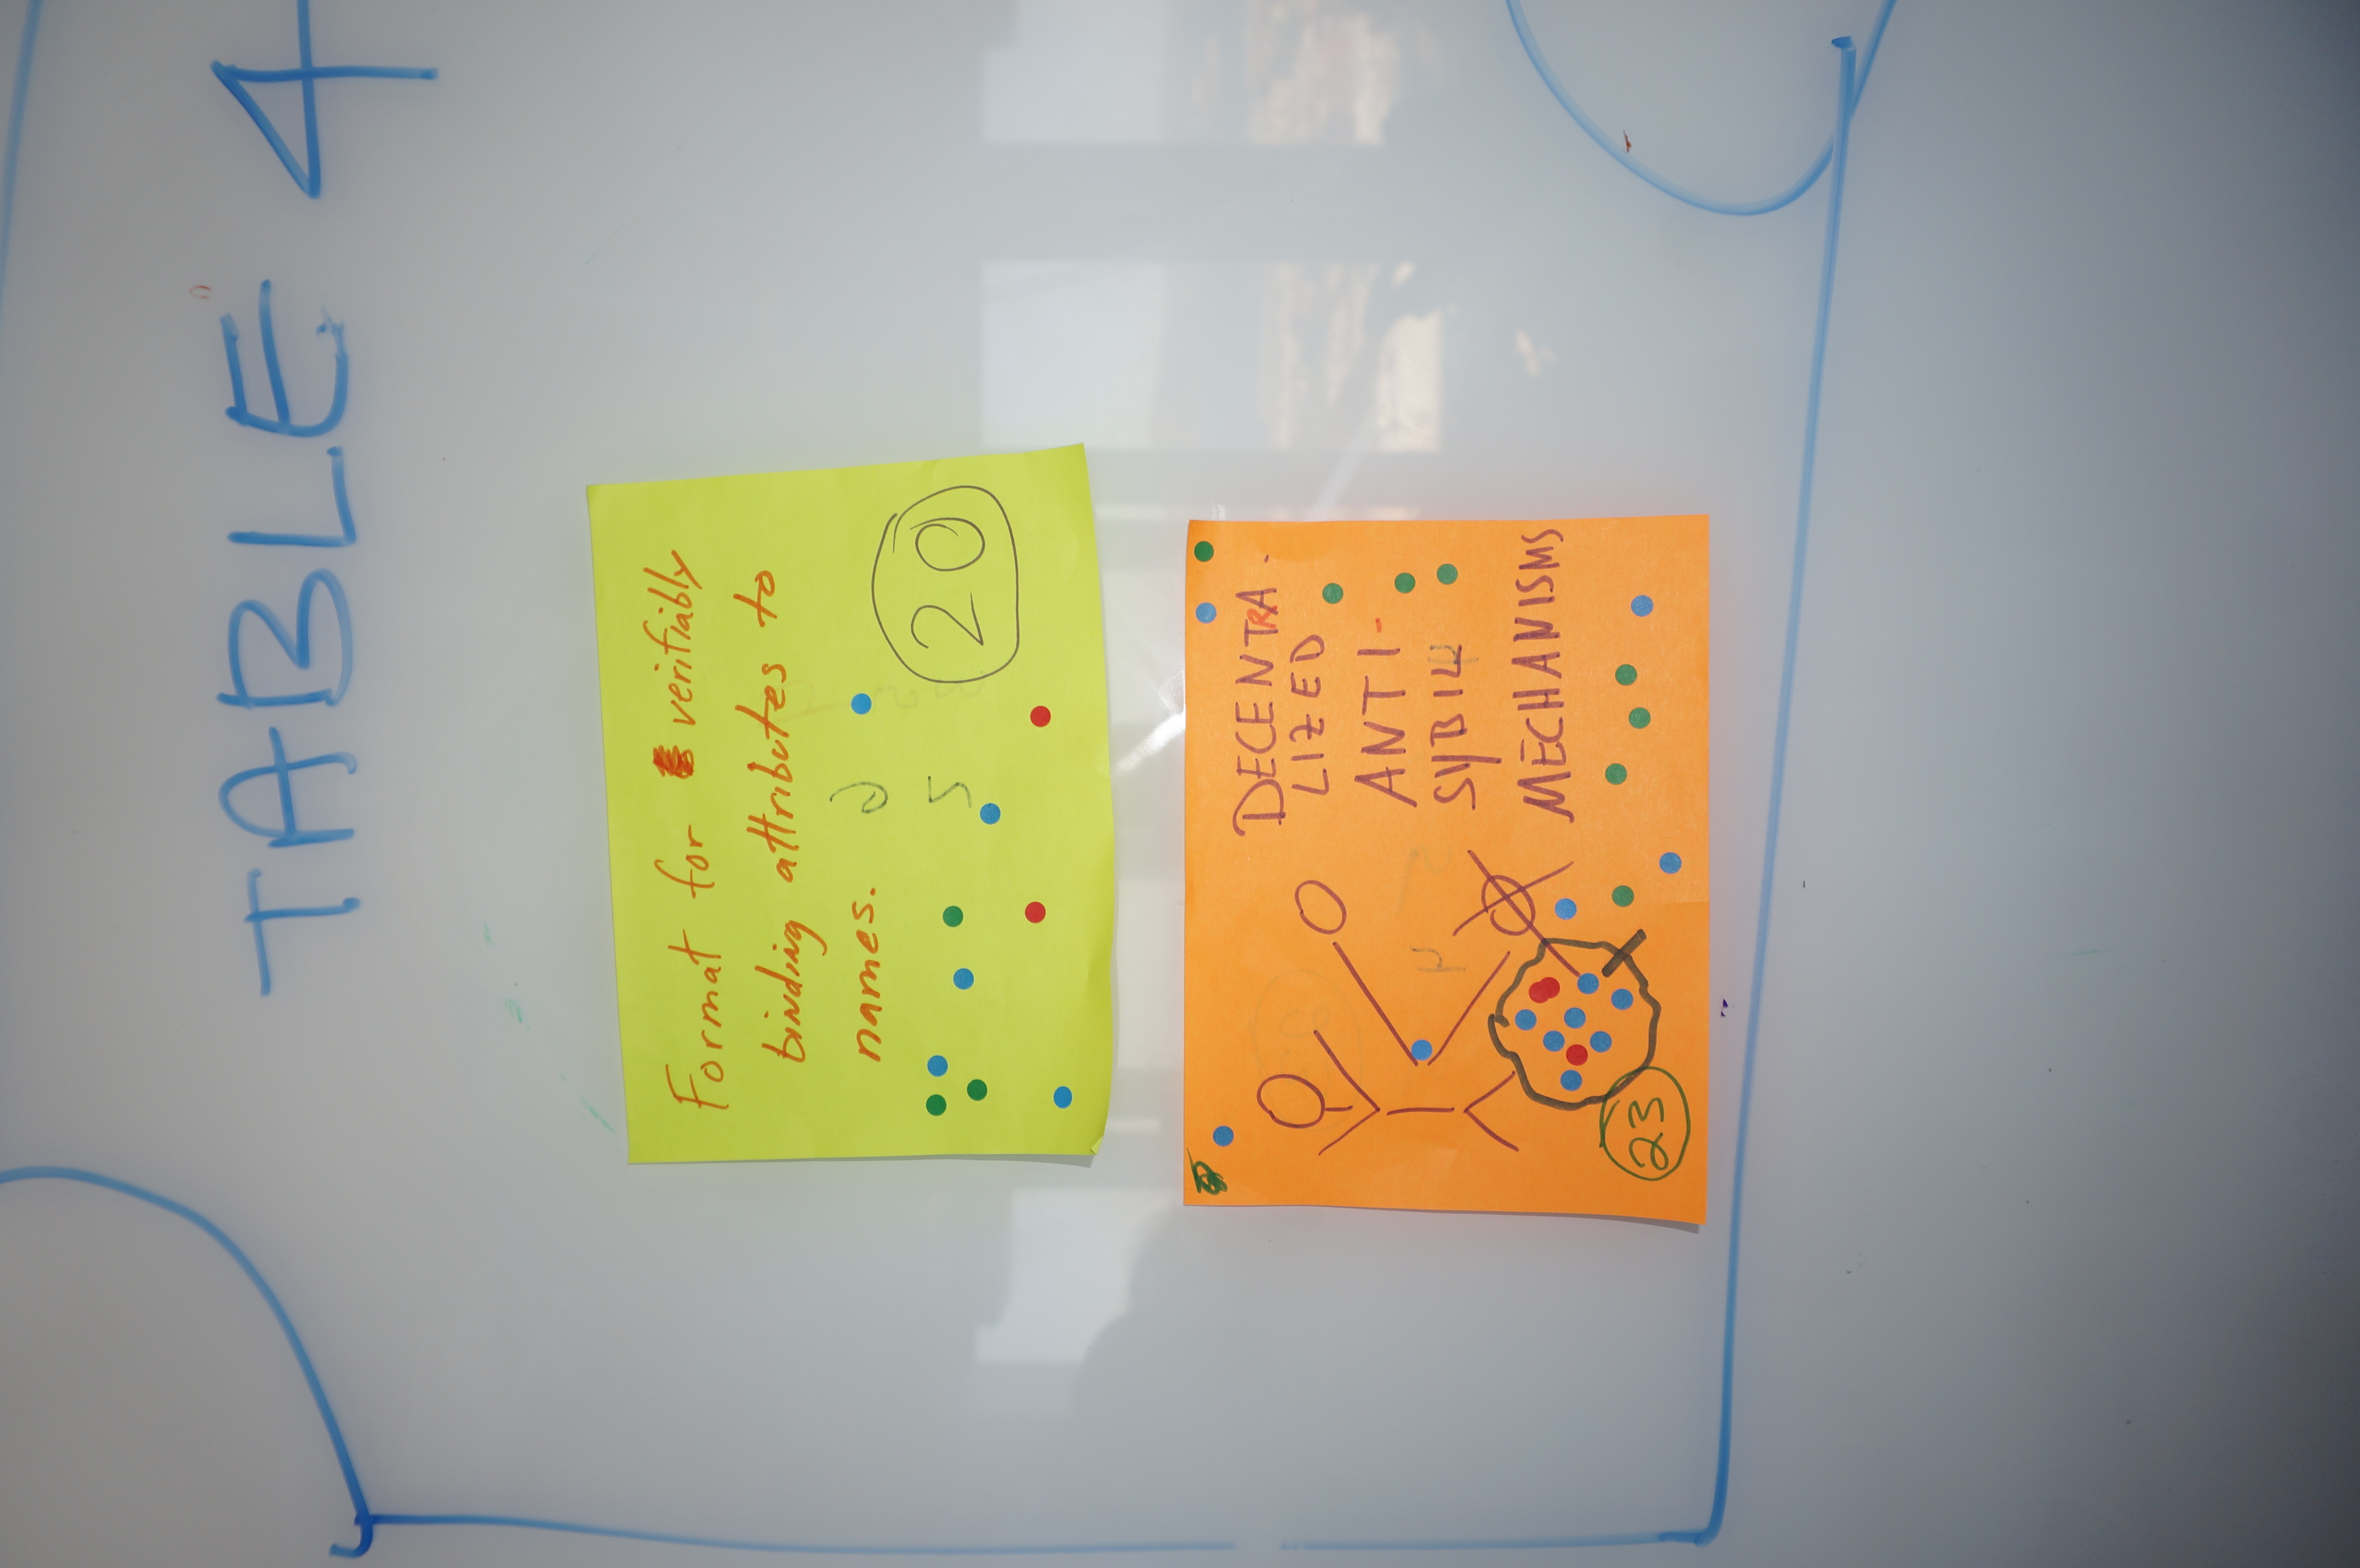 TABLE 4
Format for verifiably
binding attributes to
names.
5
20
DECENTRA-
LIZED
ANTI-
SYBIL
MECHANISMS
23